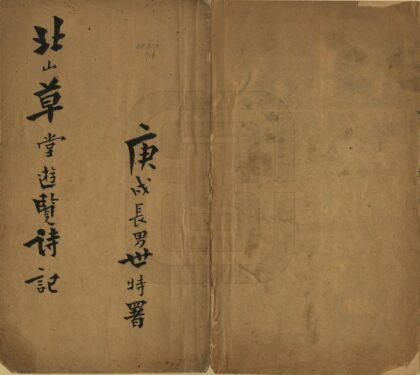 北山草堂遊覽詩記
庚戌長男世特署